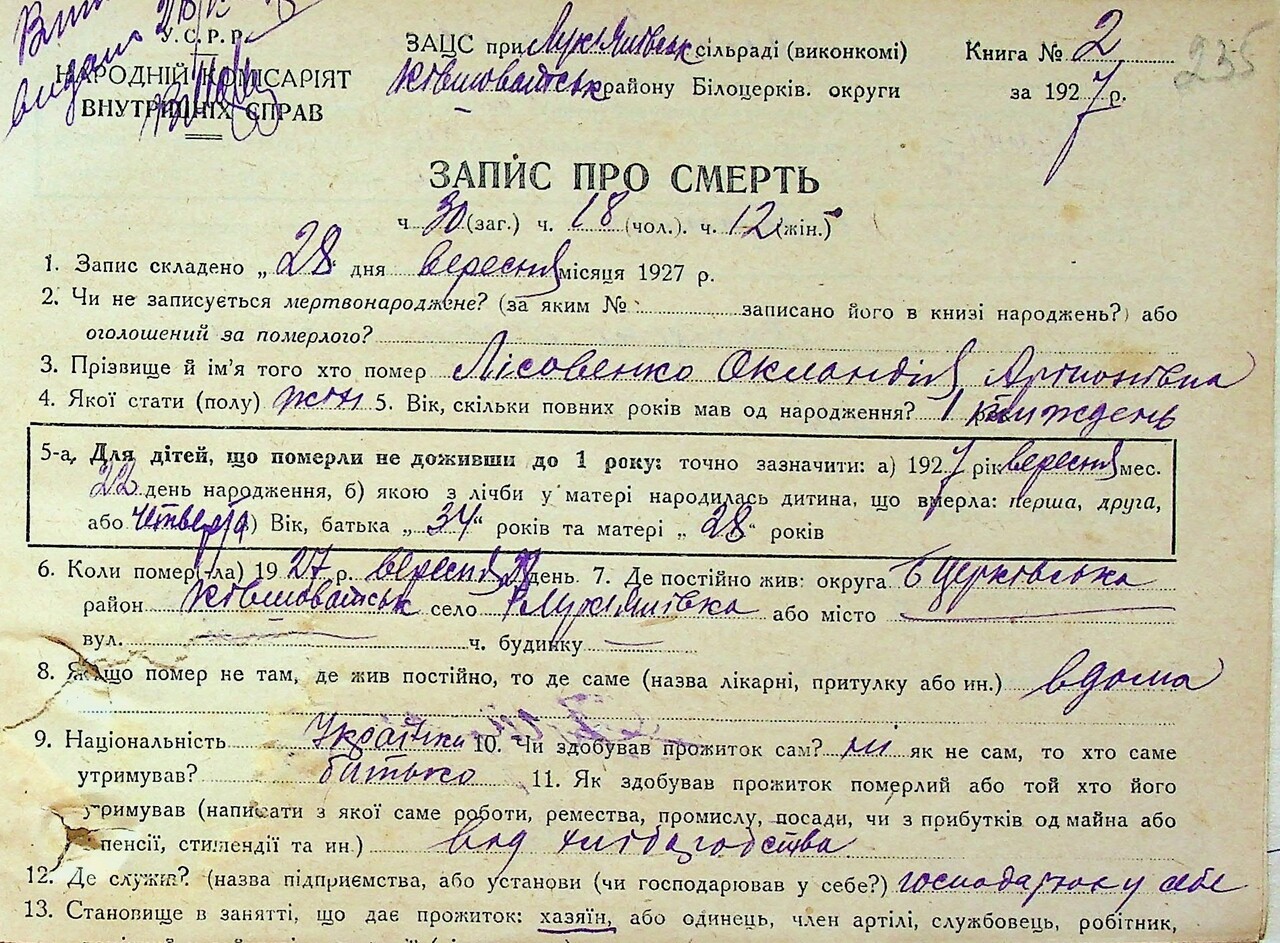 видано
У.С.Р.Р.
НАРОДНІЙ КОМІСАРІЯТ
ВНУТРІШНІХ СПРАВ
ЗАЦС при Лукʼянівськ сільраді (виконкомі)
Ківшоватськ району Білоцерків. округи
Книга № 2
за 1927 р.
235
ЗАПИС ПРО СМЕРТЬ
ч 30 (заг.) ч. 18 (чол.). ч. 12 (жін.)
1. Запис складено „ 28 " дня вересня місяця 1927 р.
2. Чи не записується мертвонароджене? (за яким № записано його в книзі народжень?) або
оголошений за померлого?
3. Прізвище й ім'я того хто помер Лісовенко Окландія Артионівна
4. Якої стати (полу) жін 5. Вік, скільки повних років мав од народження? 1 тиждень
5-а. Для дітей, що померли не доживши до 1 року: точно зазначити: а) 1927 рік вересня мес.
22 день народження, б) якою з лічби у матері народилась дитина, що вмерла: перша, друга,
або четверта) Вік, батька „ 34 " років та матері „ 28 " років
6. Коли помер(ла) 1927 р. вересня день 7. Де постійно жив: округа Б Церковська
район Ківшоватськ село Лукʼянівка або місто
вул. ч. будинку
8. Якщо помер не там, де жив постійно, то де саме (назва лікарні, притулку або ин.) вдома
9. Національність Українка 10. Чи здобував прожиток сам? ні як не сам, то хто саме
утримував? батько 11. Як здобував прожиток померлий або той хто його
утримував (написати з якої саме роботи, ремества, промислу, посади, чи з прибутків од майна або
пенсії, стипендії та ин.) від хліборобства
12. Де служив? (назва підприємства, або установи (чи господарював у себе?) господарює у себе
13. Становище в занятті, що дає прожиток: хазяїн, або одинець, член артілі, службовець, робітник,